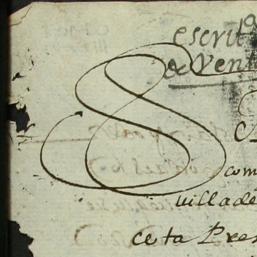 escrit.ª
de Vent
S
com
villa de
ce ta Pres